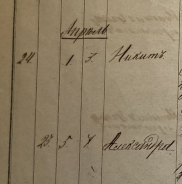 Апрѣль
24. 1 7. Никитъ
27. 5 4 Александръ